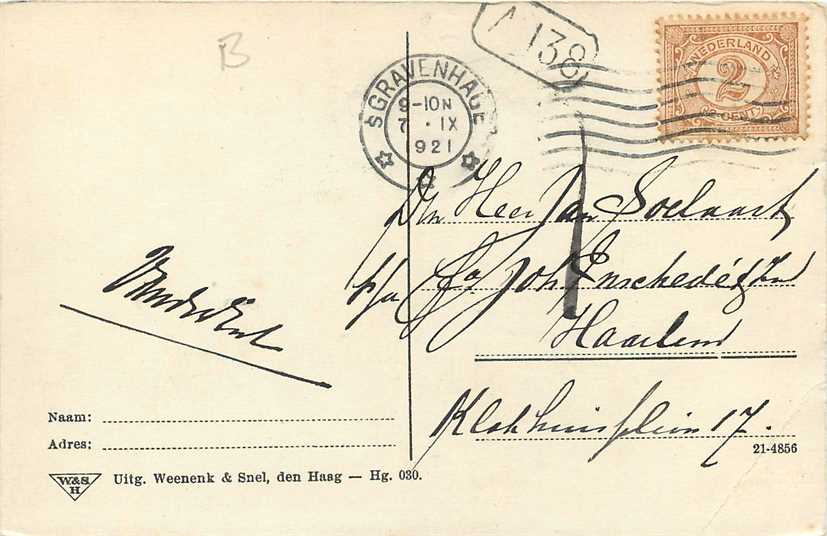 B
A 138
NEDERLAND
2
CENT
SGRAVENHAGE
9-10N
7 · IX
1921
Den Heer Jan
p/a Fa Joh Enschedé & Zn
Haarlem
Klokhuisplein 17.
Naam:
Adres:
21-4856
W&S
H
Uitg. Weenenk & Snel, den Haag — Hg. 030.